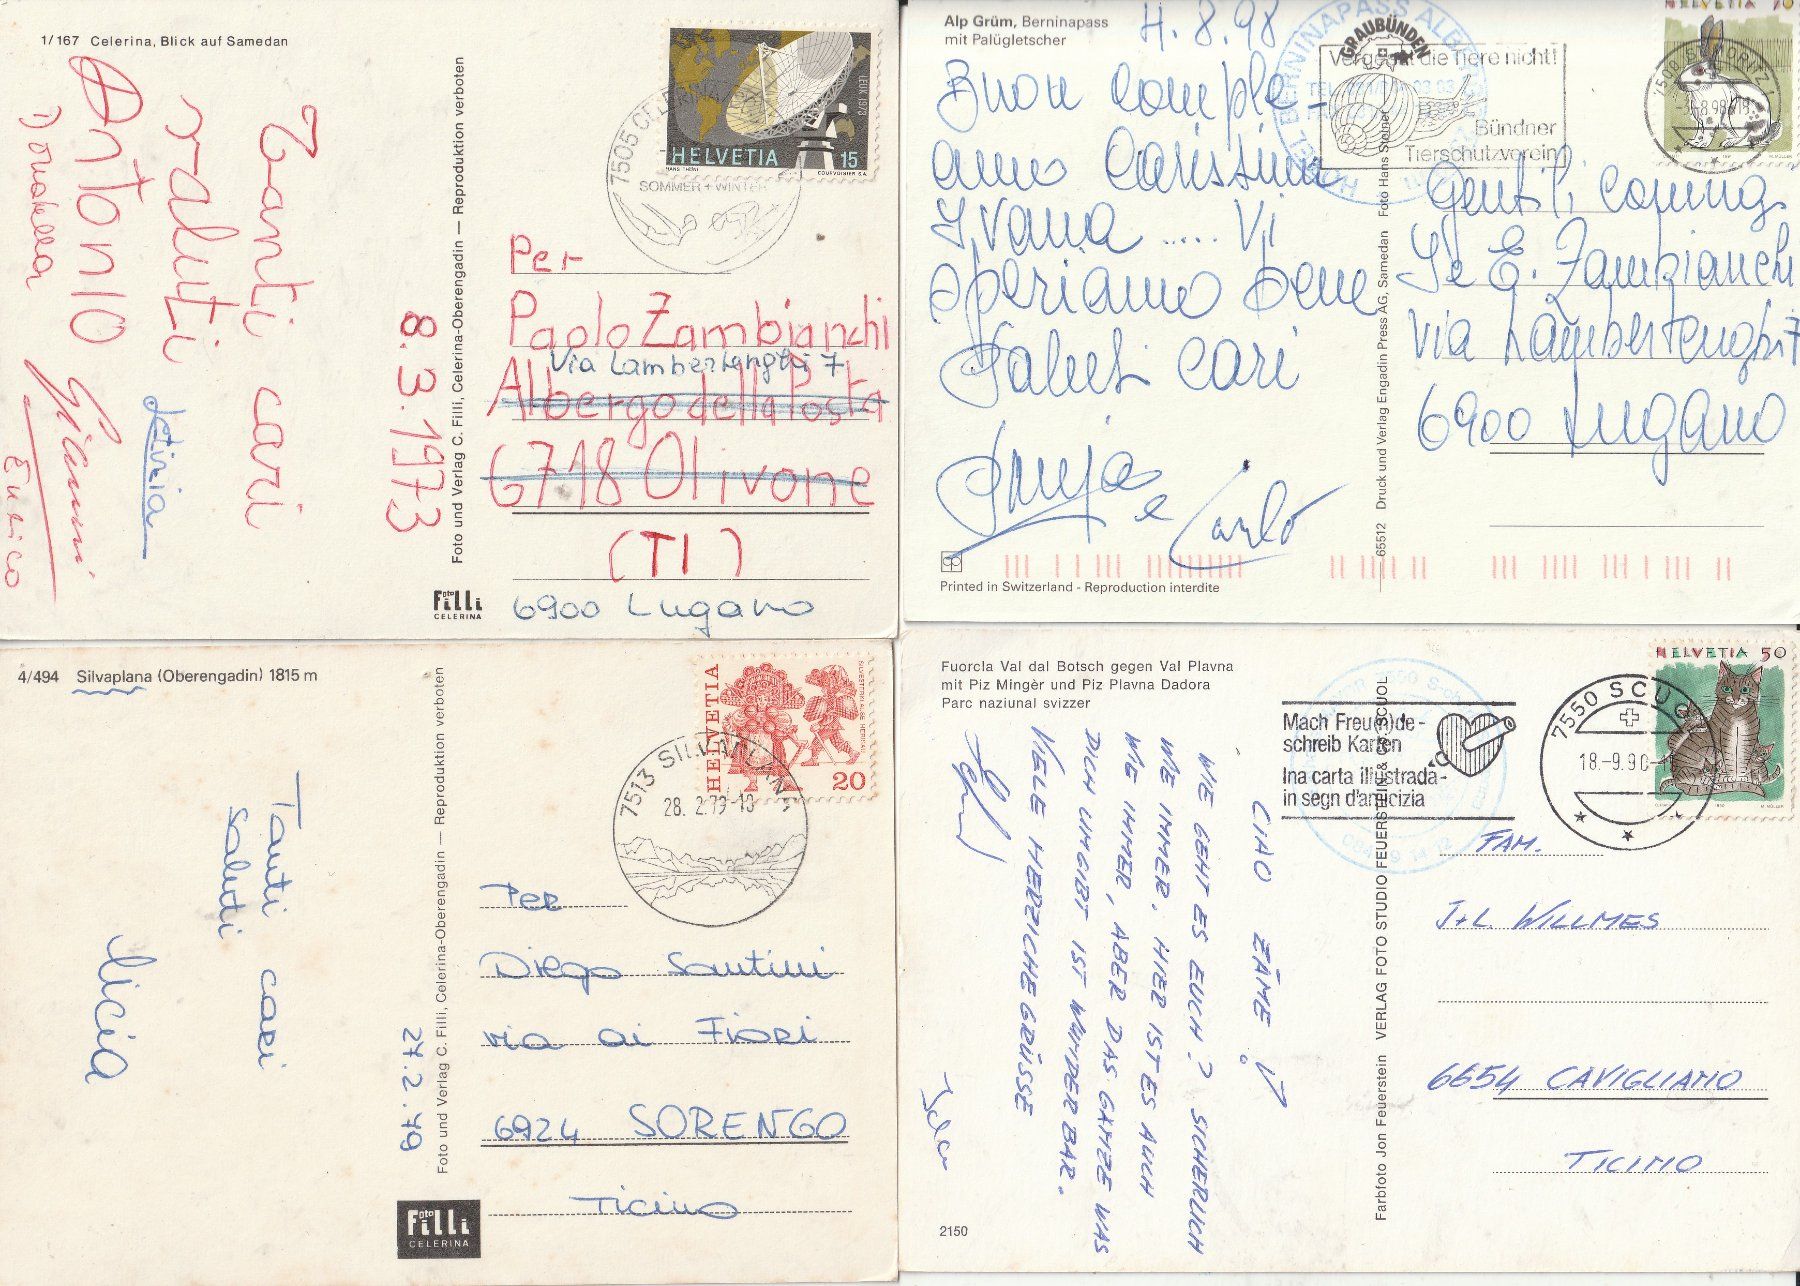 1/167 Celerina, Blick auf Samedan
Tanti cari
saluti
Antonio
Donatella
Gianni
Enrico
8.3.1973
Foto und Verlag C. Filli, Celerina-Oberengadin — Reproduktion verboten
Foto
Filli
CELERINA
LEUK 1973
HELVETIA 15
HANS THÖNI COURVOISIER S.A.
7505 CELERINA
SOMMER + WINTER
Per
Paolo Zambianchi
Via Lambertenghi 7
Albergo della Posta
6718 Olivone
(TI)
6900 Lugano
Alp Grüm, Berninapass
mit Palügletscher
4.8.98
Buon comple-
anno carissima
Ivana ..... Vi
speriamo bene
Saluti cari
e Carlo
Printed in Switzerland - Reproduction interdite
65512 Druck und Verlag Engadin Press AG, Samedan Foto Hans Steiner
BERNINAPASS
GRAUBÜNDEN
Vergesst die Tiere nicht!
Bündner
Tierschutzverein
HELVETIA 70
M. MÜLLER
7500 ST. MORITZ 1
Gentili coniugi
I e E. Zambianchi
via Lambertenghi 7
6900 Lugano
4/494 Silvaplana (Oberengadin) 1815 m
Tanti cari
saluti
Licia
27.2.79
Foto und Verlag C. Filli, Celerina-Oberengadin — Reproduktion verboten
Foto
Filli
CELERINA
HELVETIA
20
SILVESTERKLÄUSE HERISAU
7513 SILVAPLANA
28.2.79-10
Per
Diego Santini
via ai Fiori
6924 SORENGO
Ticino
Fuorcla Val dal Botsch gegen Val Plavna
mit Piz Mingèr und Piz Plavna Dadora
Parc naziunal svizzer
CIAO ZÄME!
WIE GEHT ES EUCH? SICHERLICH
WIE IMMER. HIER IST ES AUCH
WIE IMMER, ABER DAS GANZE WAS
DICH UMGIBT IST WUNDERBAR.
VIELE HERZICHE GRÜSSE
2150
Farbfoto Jon Feuerstein VERLAG FOTO STUDIO FEUERSTEIN & CO SCUOL
Mach Freu(n)de-
schreib Karten
Ina carta illustrada-
in segn d'amicizia
7550 SCUOL
18.-9.90
HELVETIA 50
M. MÜLLER
FAM.
J+L. WILLMES
6654 CAVIGLIANO
TICINO